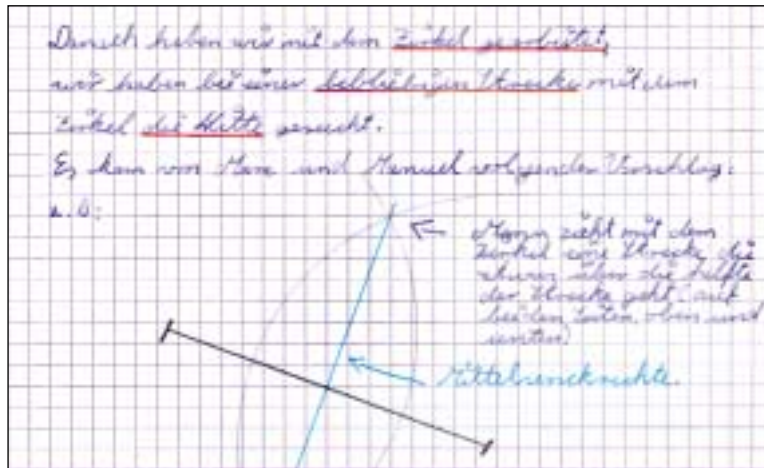 Danach haben wir mit dem Zirkel gearbeitet,
wir haben bei einer beliebigen Strecke mit dem
Zirkel die Mitte gesucht.
Es kam von Marc und Manuel volgender Vorschlag:
z.B:
Mann zieht mit dem
Zirkel eine Strecke die
über die hälfte
der Strecke geht (auf
beiden Seiten, oben und
unten)
Mittelsenkrechte.